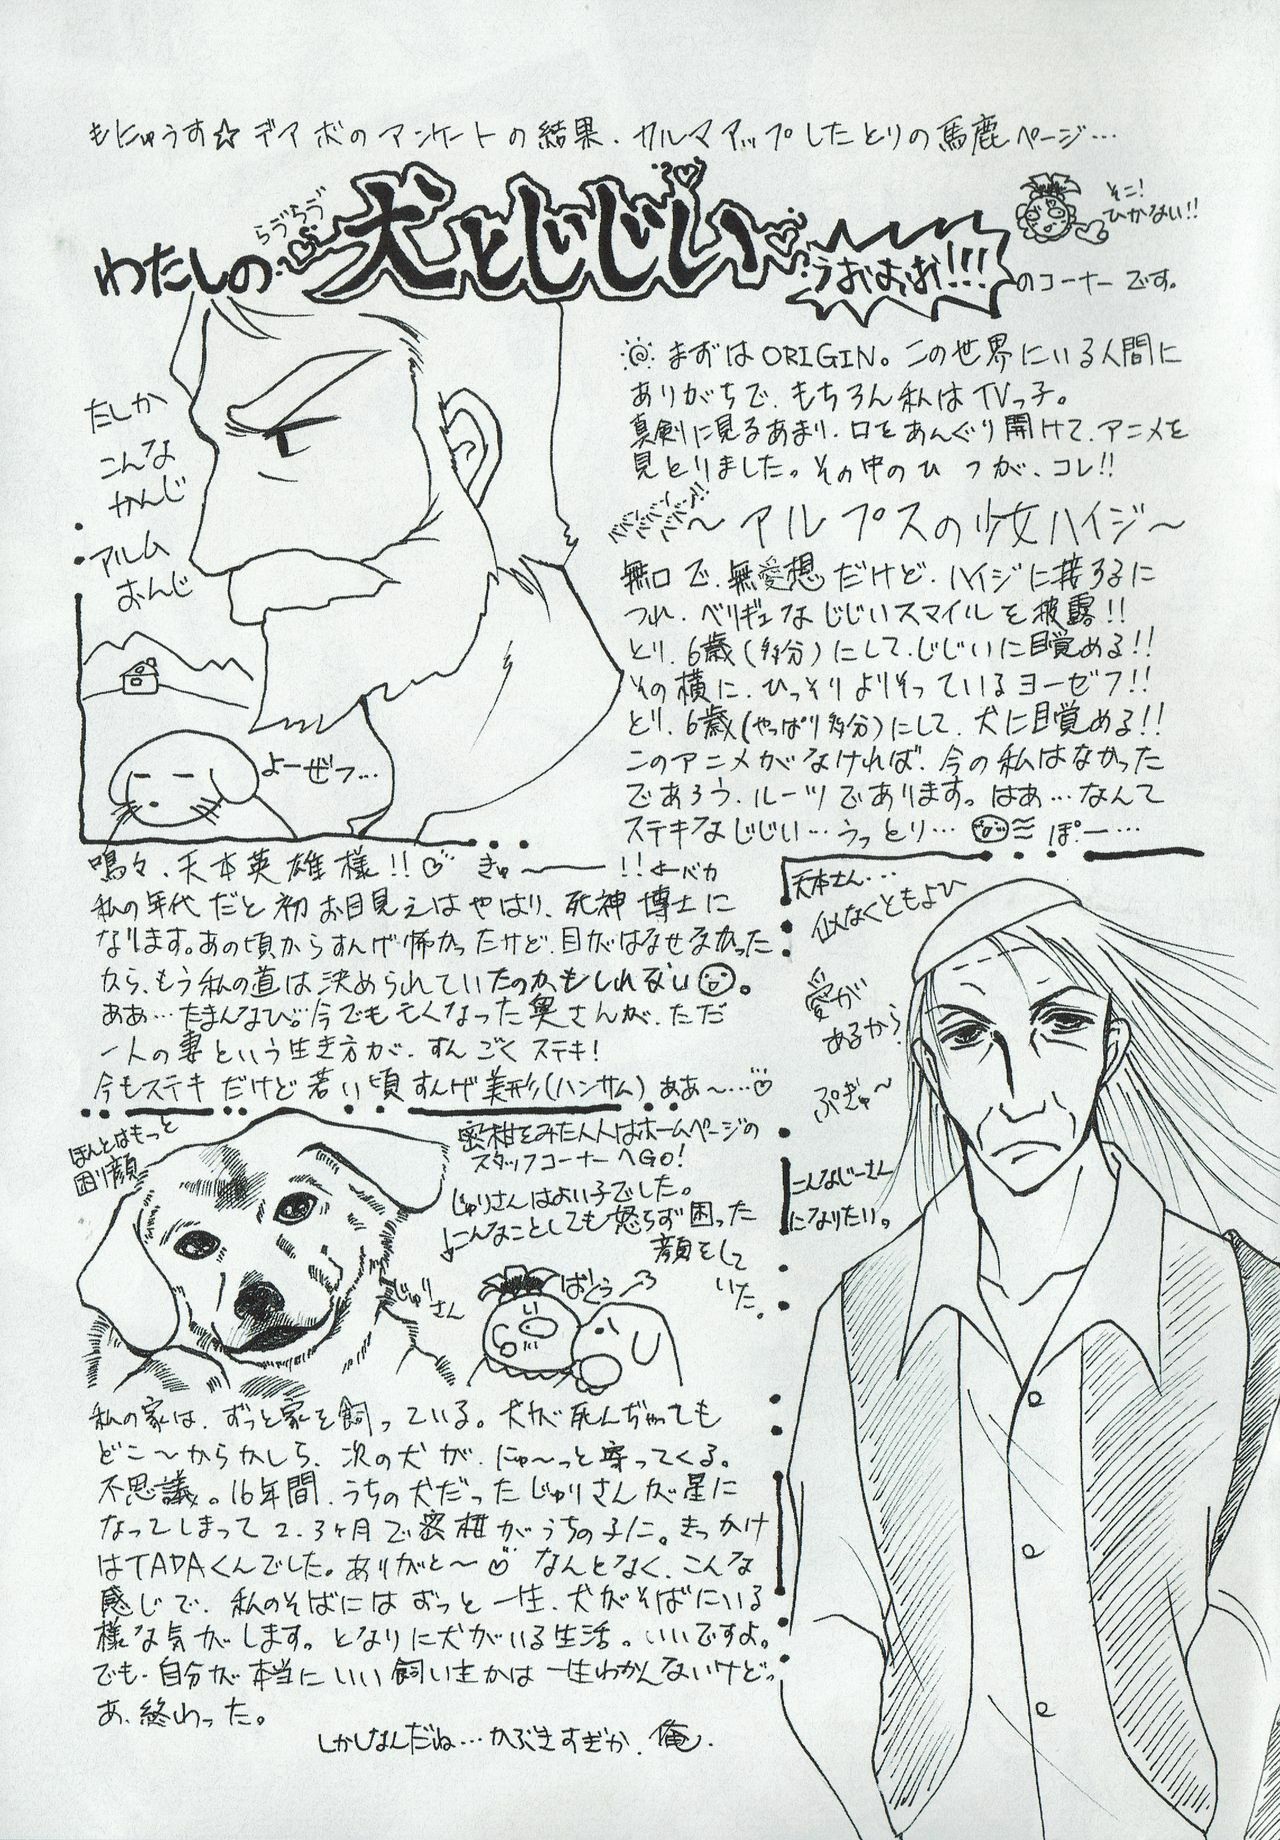 もにゅうす☆デアボのアンケートの結果、カルマアップしたとりの馬鹿ページ…
わたしの
らぶらぶ
犬とじじい
うおぉぉ!!!
のコーナーです。
そこ!
ひかない!!
たしか
こんな
かんじ
アルム
おんじ
よーぜフ…
まずはORIGIN。この世界にいる人間に
ありがちで、もちろん私はTVっ子。
真剣に見るあまり、口をあんぐり開けて、アニメを
見とりました。その中のひつが、コレ!!
〜アルプスの少女ハイジ〜
無口で、無愛想だけど、ハイジに接するに
つれ、ベリギュなじじいスマイルを披露!!
とり、6歳(多分)にして、じじいに目覚める!!
その横に、ひっそりよりそっているヨーゼフ!!
とり、6歳(やっぱり多分)にして、犬に目覚める!!
このアニメがなければ、今の私はなかった
であろう、ルーツであります。はあ…なんて
ステキなじじい…うっとり… ぽー…
鳴々、天本英雄様!!♡ きゅ〜――!!←バカ
私の年代だと初お目見えはやはり、死神博士に
なります。あの頃からすんげ怖かったけど、目がはなせなかった
から、もう私の道は決められていたのかもしれない。
ああ…たまんなひ。今でも亡くなった奥さんが、ただ
一人の妻という生き方が、すんごくステキ!
今もステキだけど若い頃すんげ美形(ハンサム)ああ〜…♡
天本さん…
似なくともよひ
愛が
あるから
ぷぎゅ〜
こんなじーさん
になりたい。
ほんとはもっと
困り顔
密柑をみた人はホームページの
スタッフコーナーへGO!
じゅりさんはよい子でした。
こんなことしても怒らず困った
顔をして
いた。
じゅりさん
ばくぅ
私の家は、ずっと家を飼っている。犬が死んぢゃっても
どこ〜からかしら、次の犬が、にゅ〜っと寄ってくる。
不思議。16年間、うちの犬だったじゅりさんが星に
なってしまって2、3ヶ月で密柑がうちの子に。きっかけ
はTADAくんでした。ありがと〜♡ なんとなく、こんな
感じで、私のそばにはずっと一生、犬がそばにいる
様な気がします。となりに犬がいる生活。いいですよ。
でも、自分が本当にいい飼い主かは一生わかんないけどっ
あ、終わった。
しかしなんだね…かぶきすぎか、俺。